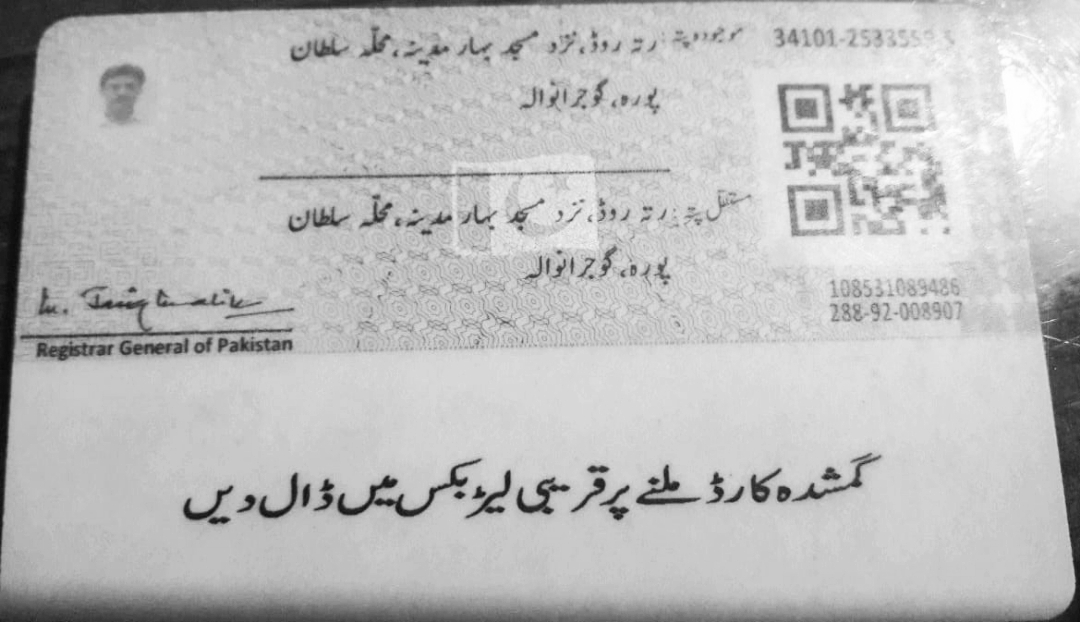 موجودہ پتہ: رتہ روڈ، نزد مسجد بہار مدینہ، محلّہ سلطان
پورہ، گوجرانوالہ
مستقل پتہ: رتہ روڈ، نزد مسجد بہار مدینہ، محلّہ سلطان
پورہ، گوجرانوالہ
108531089486
288-92-008907
Registrar General of Pakistan
گمشدہ کارڈ ملنے پر قریبی لیٹر بکس میں ڈال دیں